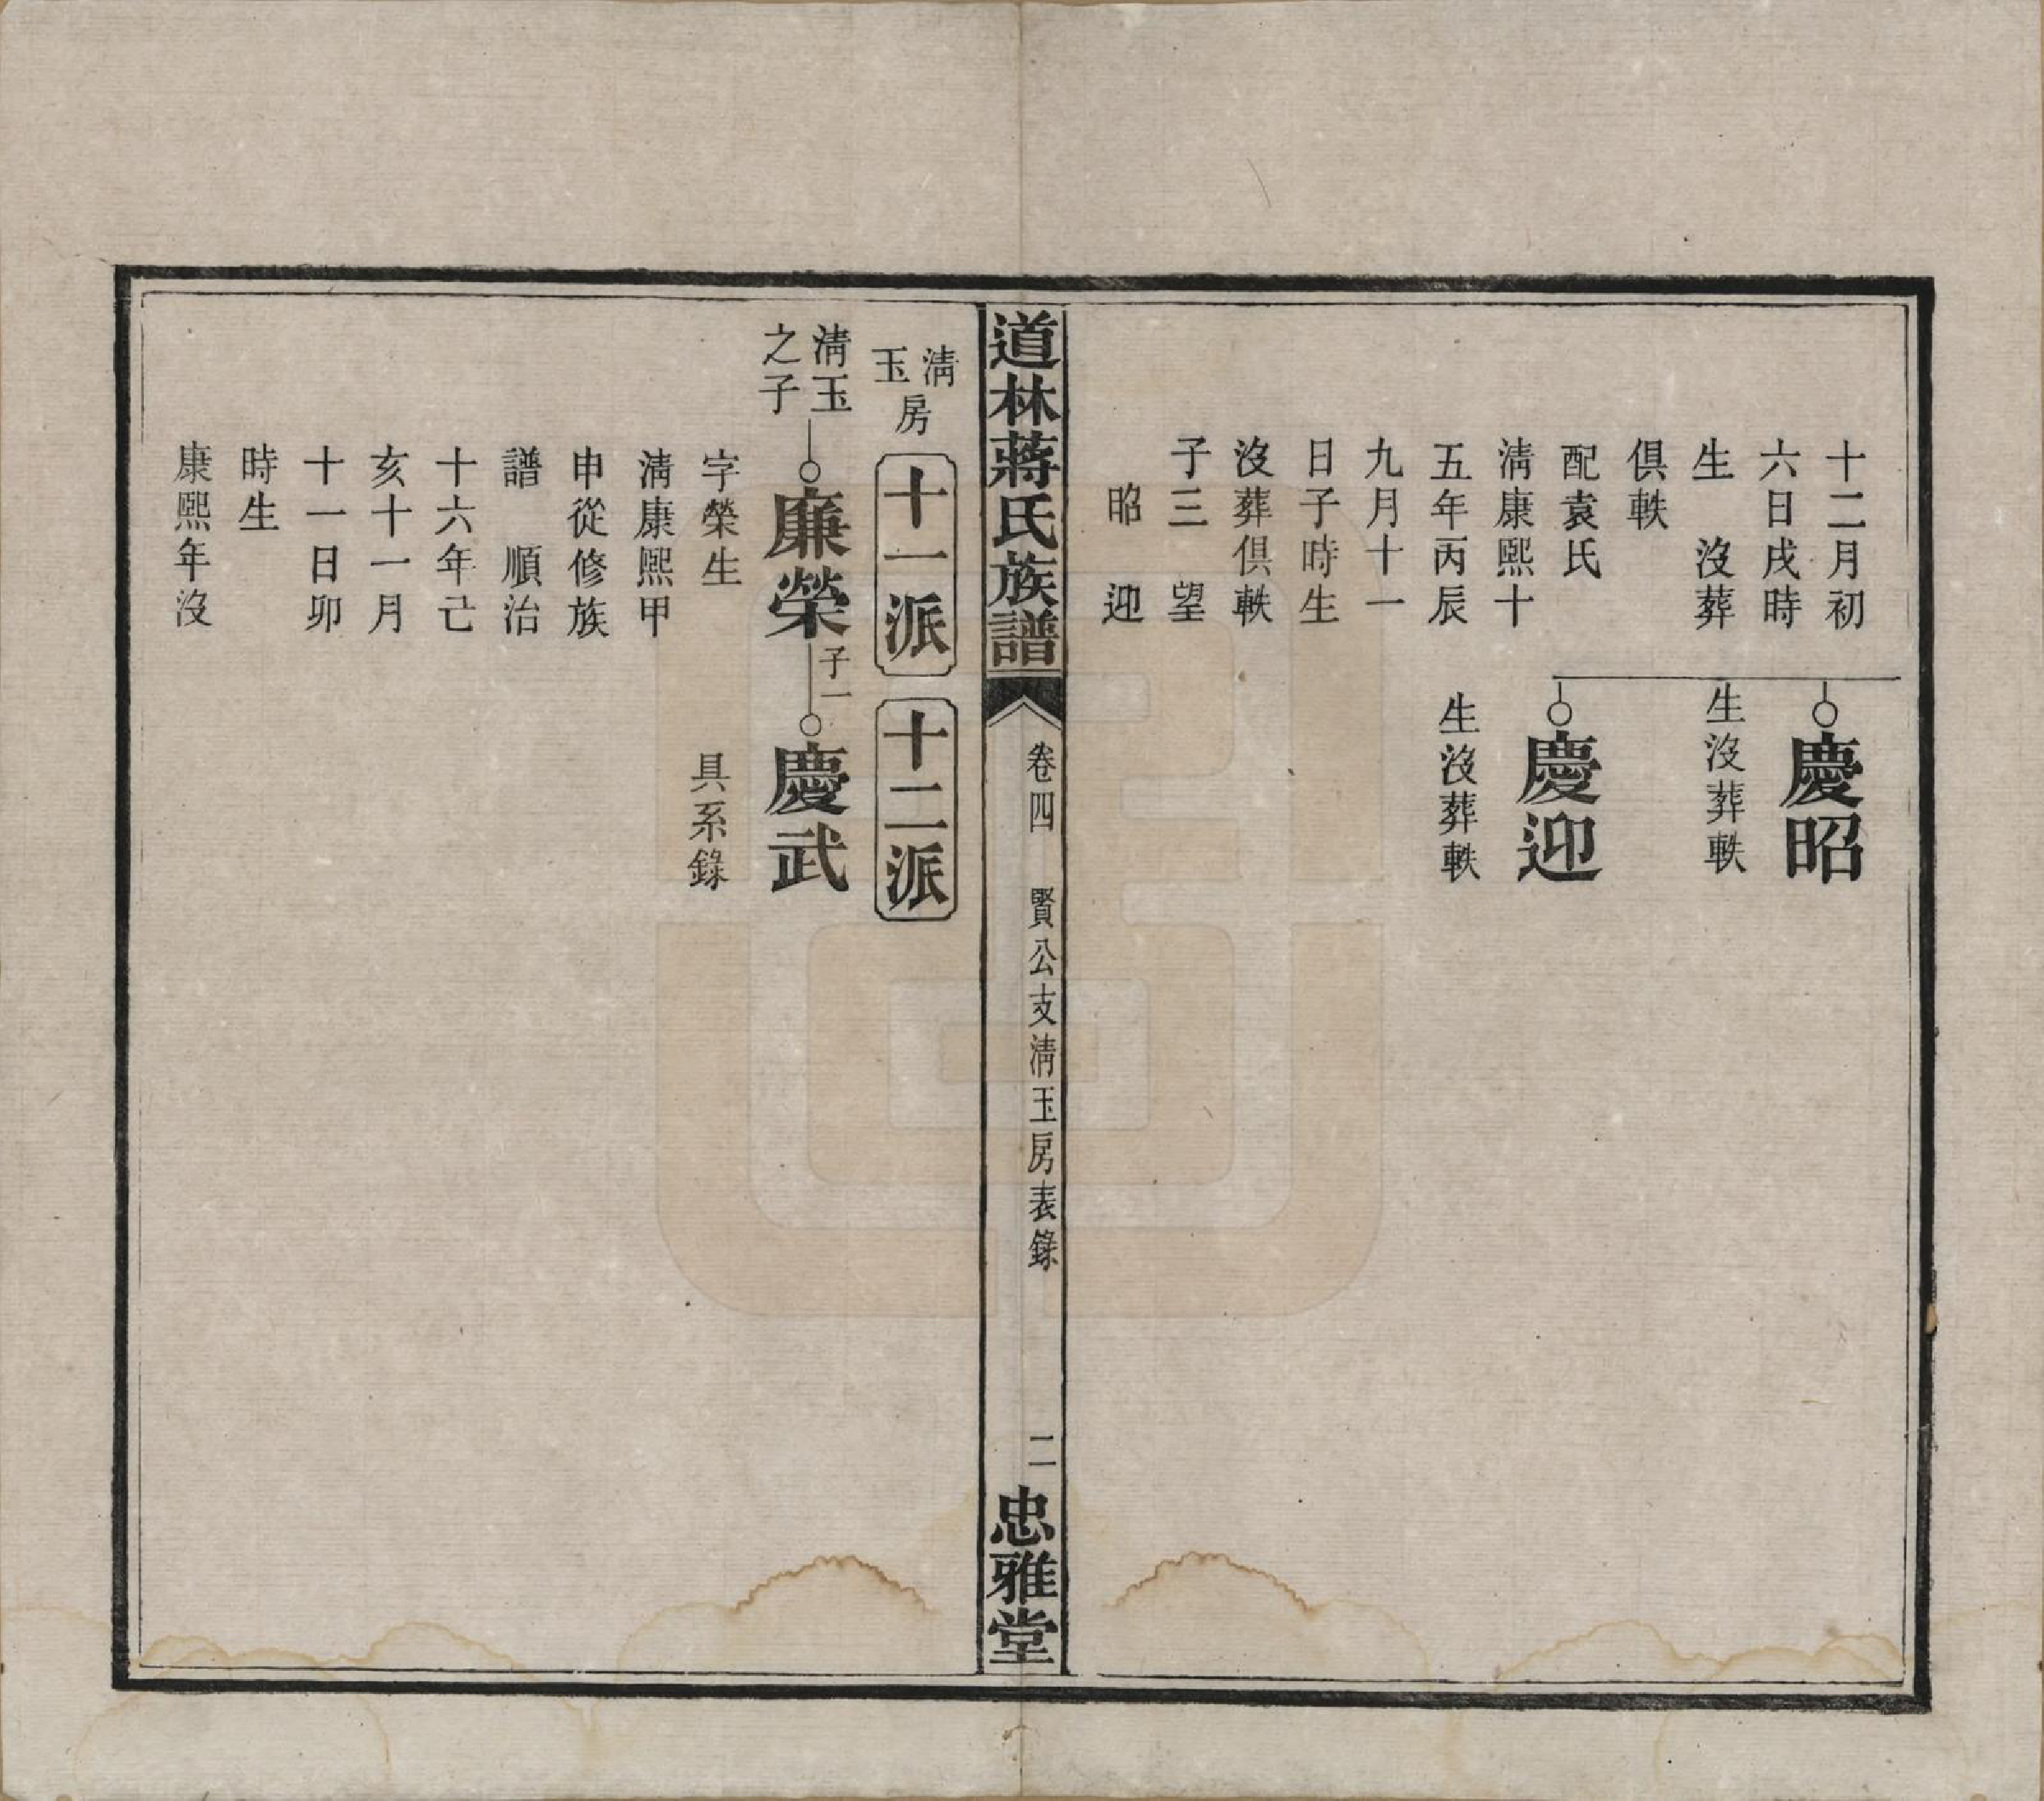 十二月初
六日戌時
生　沒葬
俱軼
配袁氏
淸康熙十
五年丙辰
九月十一
日子時生
沒葬俱軼
子三　望
昭　迎
慶昭
生沒葬軼
慶迎
生沒葬軼
道林蔣氏族譜
卷四　賢公支淸玉房表錄
二
忠雅堂
淸玉房
十一派
十二派
淸玉
之子
廉榮
子一
慶武
字榮生
淸康熙甲
申從修族
譜　順治
十六年己
亥十一月
十一日卯
時生
康熙年沒
具系錄